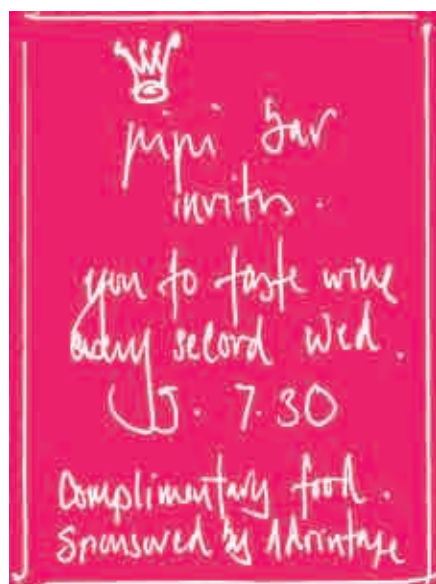 pipi bar
invites.
you to taste wine
every second Wed.
5. 7.30
Complimentary food.
Sponsored by